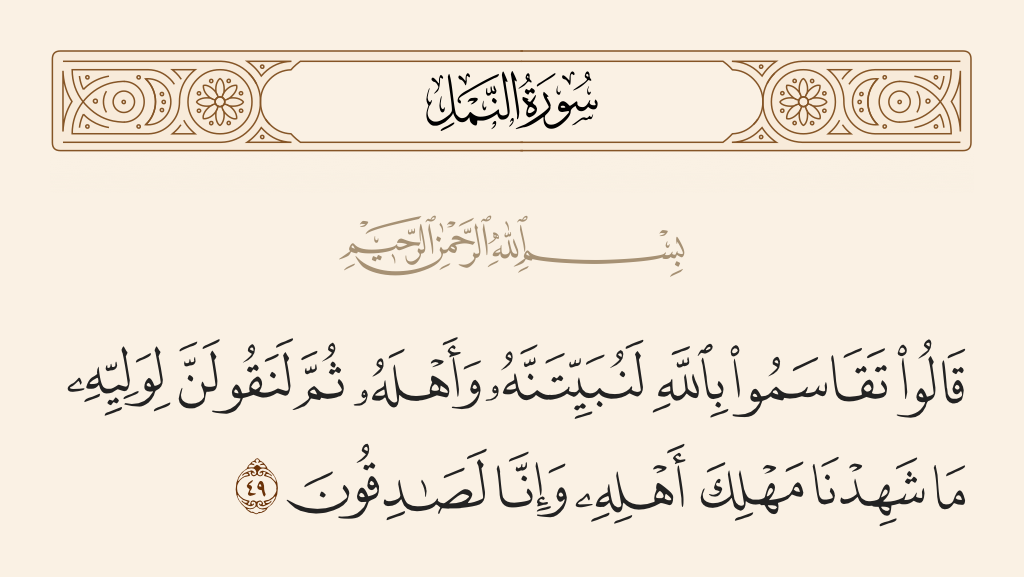 سُورَةُ النَّمْلِ
بِسْمِ ٱللَّهِ ٱلرَّحْمَٰنِ ٱلرَّحِيمِ
قَالُوا۟ تَقَاسَمُوا۟ بِٱللَّهِ لَنُبَيِّتَنَّهُۥ وَأَهْلَهُۥ ثُمَّ لَنَقُولَنَّ لِوَلِيِّهِۦ
مَا شَهِدْنَا مَهْلِكَ أَهْلِهِۦ وَإِنَّا لَصَـٰدِقُونَ ٤٩